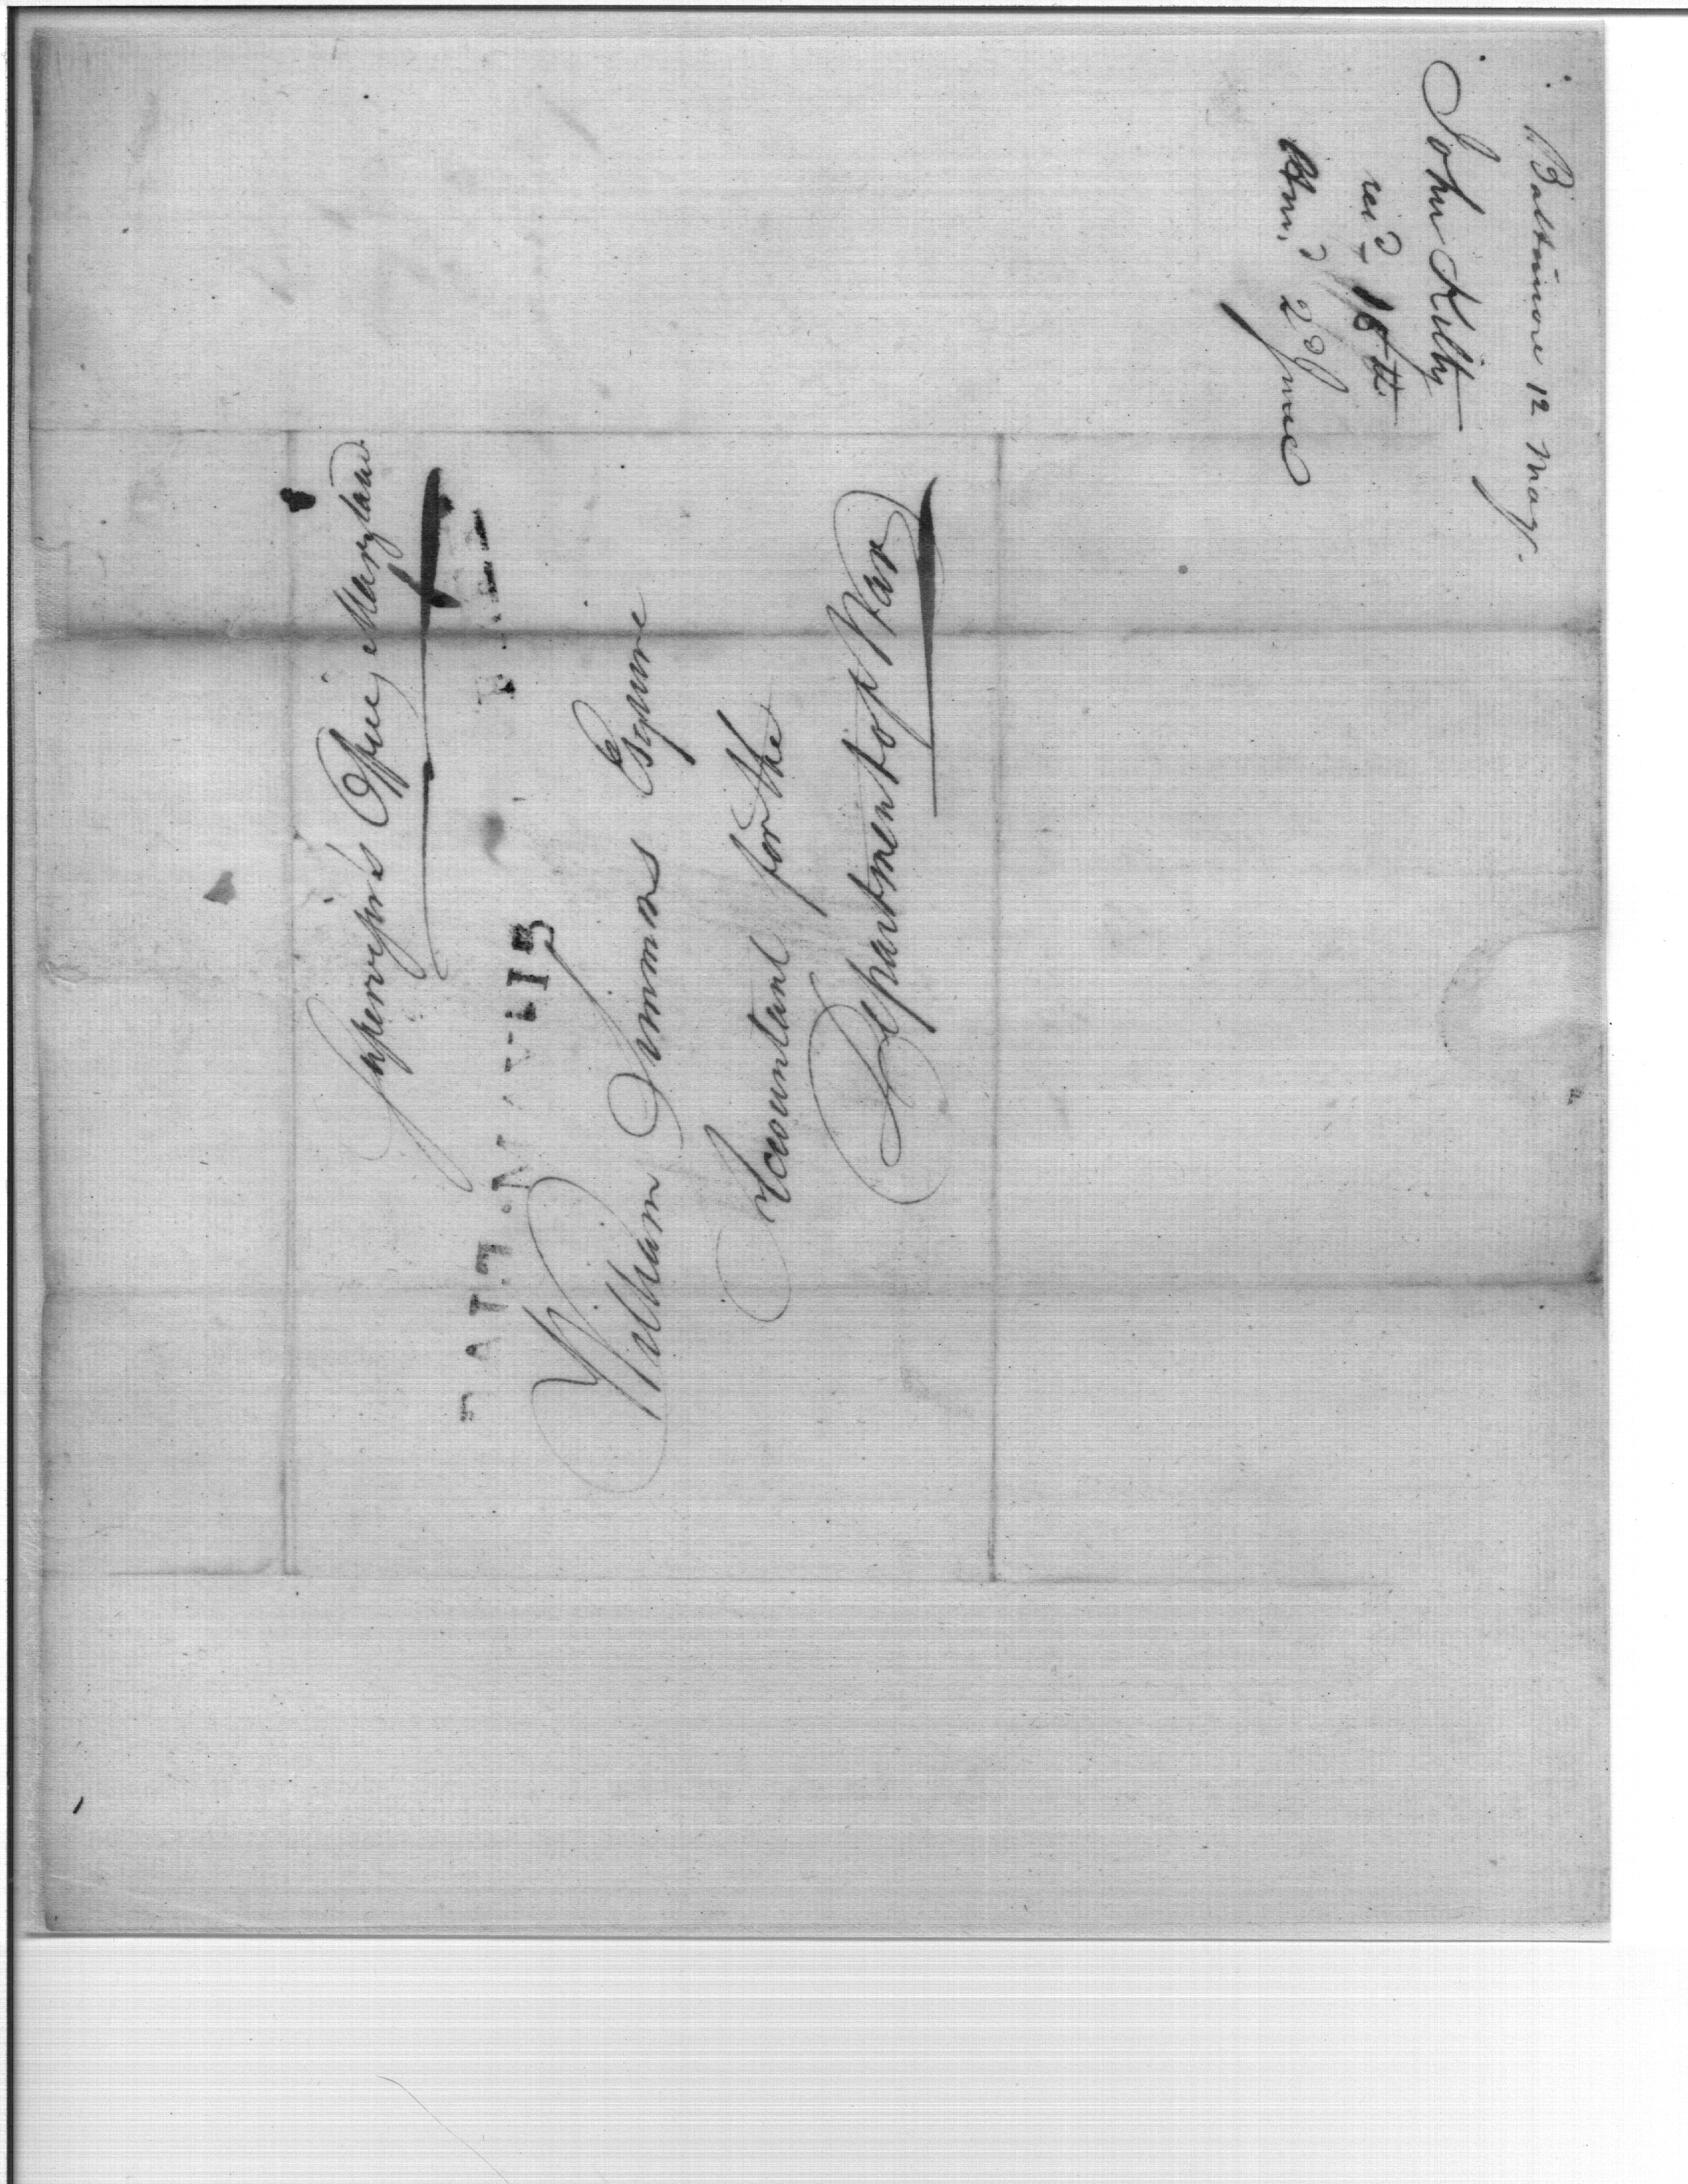 Baltimore 12 May.
John Kilty
rec.d 16th
Ans.d 2d June
Supervisor's Office, Maryland
William Simmons Esquire
Accountant for the
Department of War